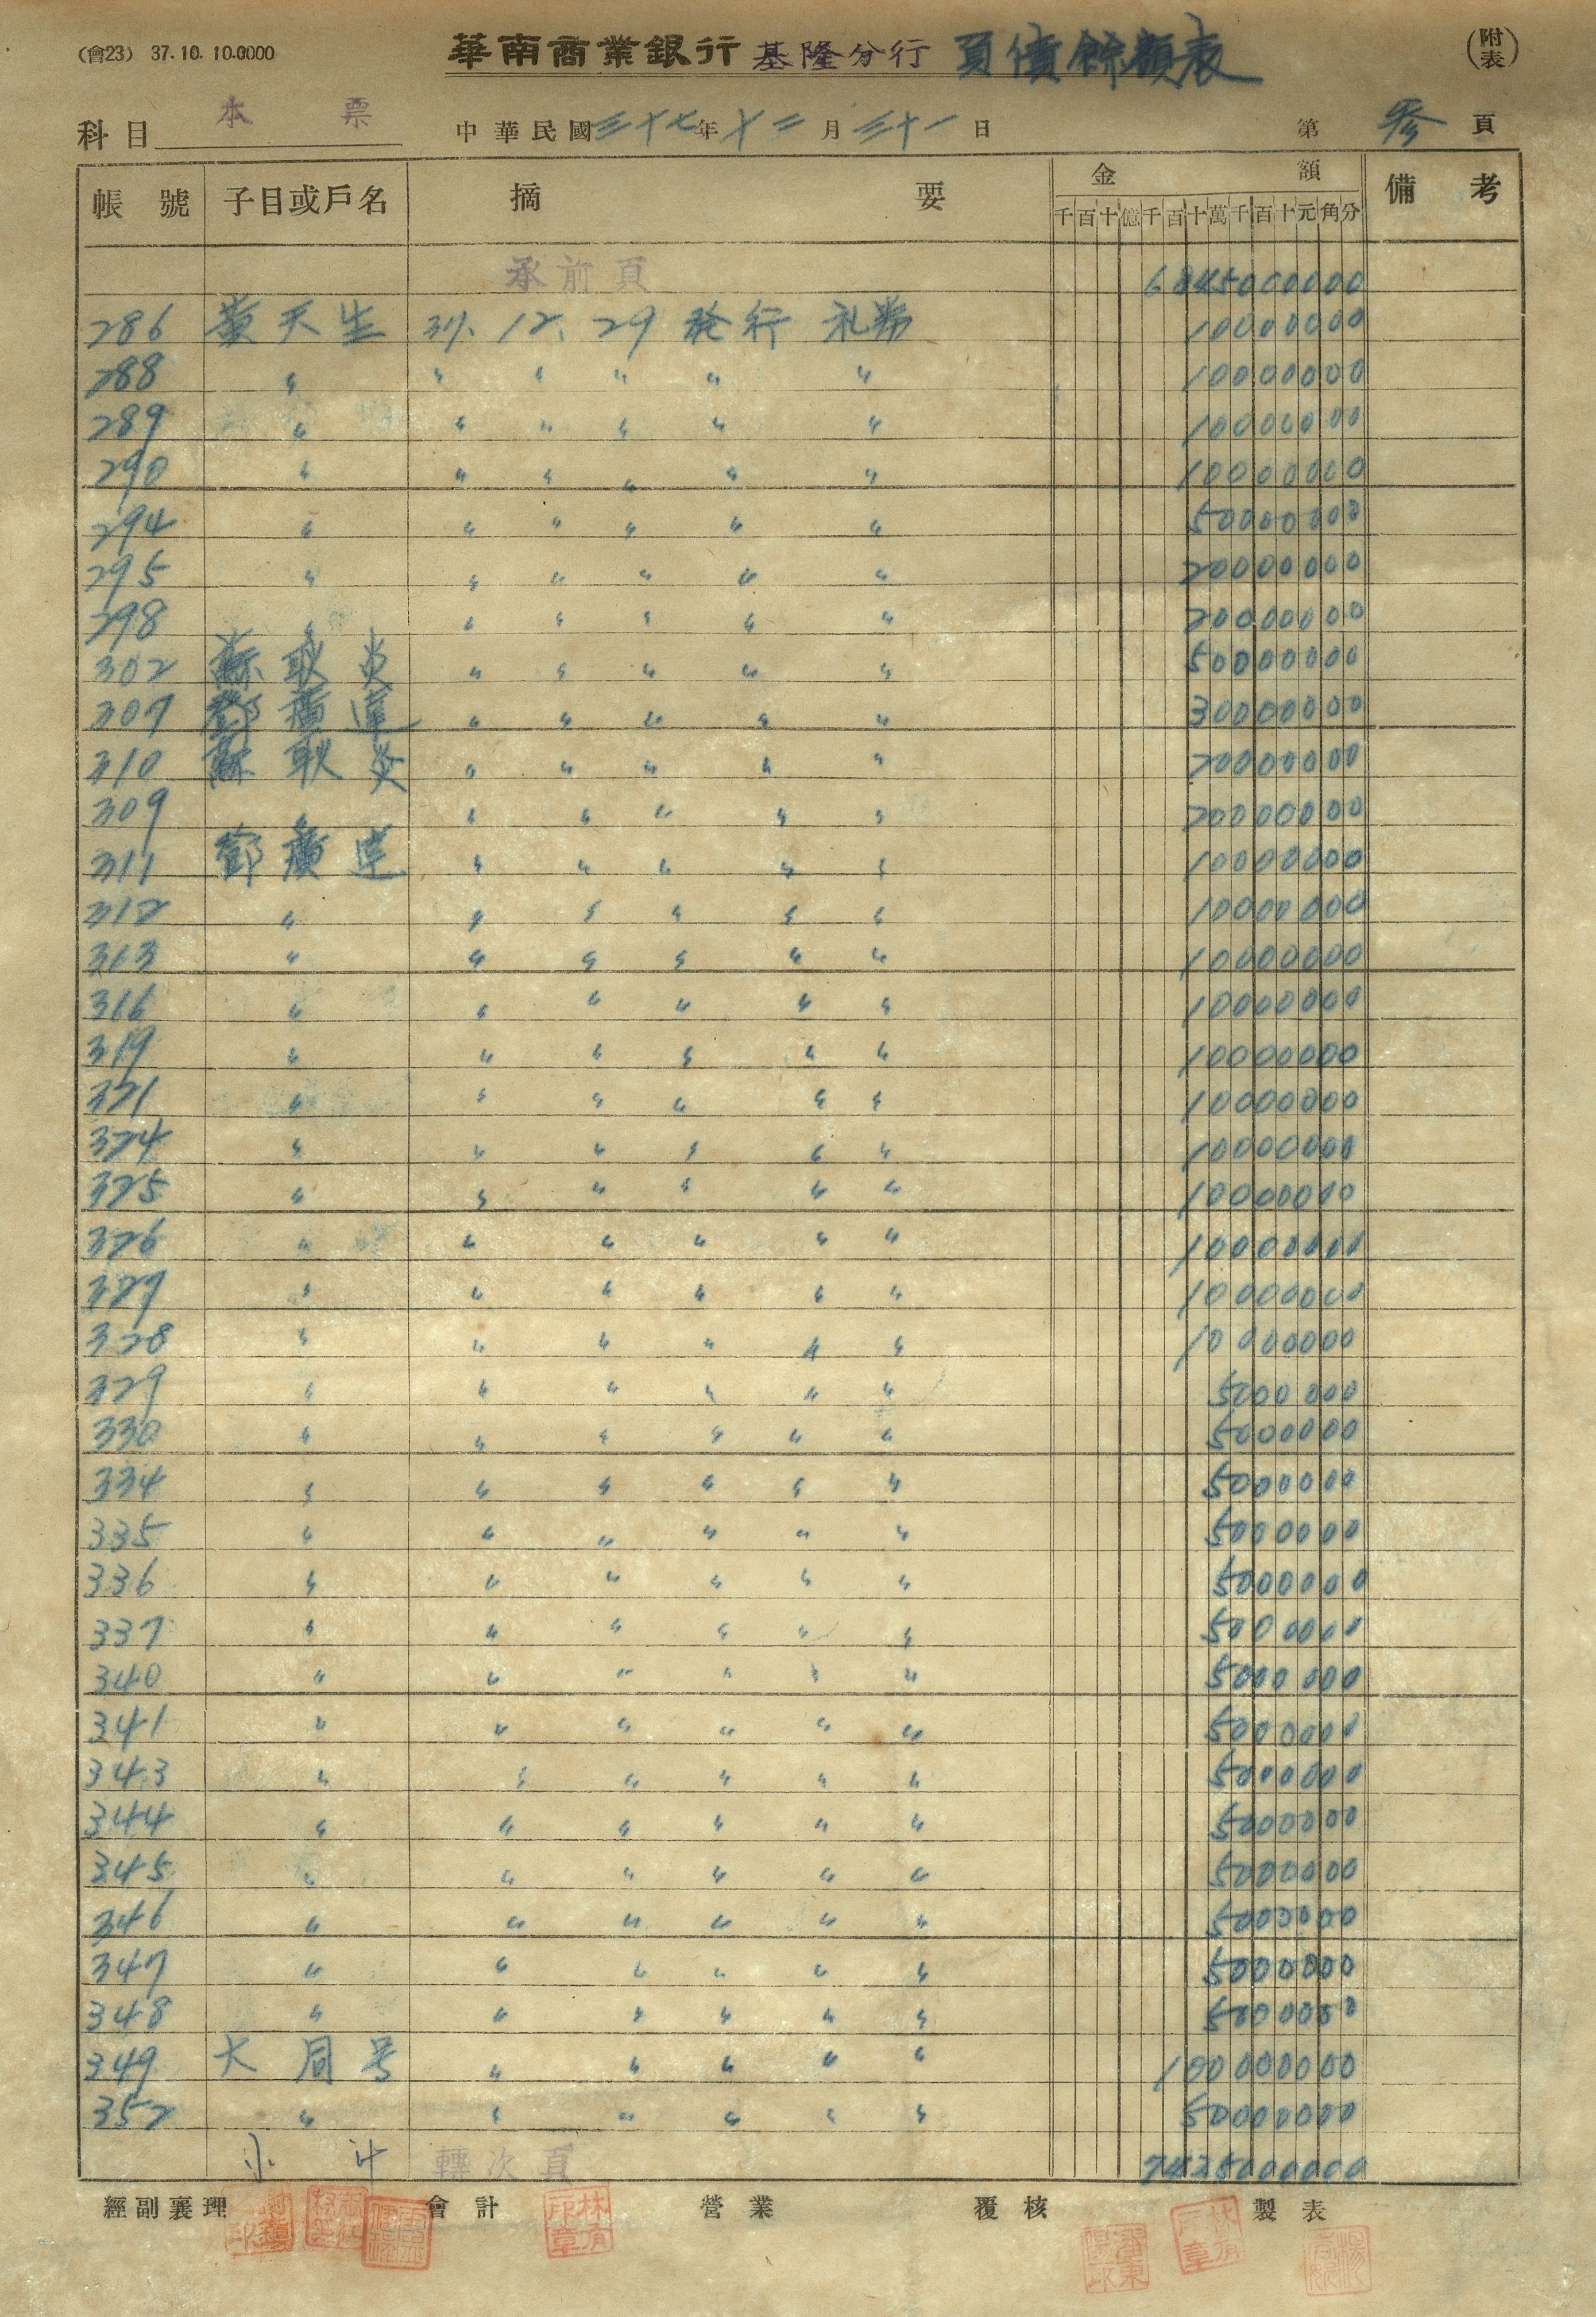 (會23) 37.10.10.0000
華南商業銀行 基隆分行 負債餘額表
(附表)
科目 本票 中華民國三十七年十二月三十一日 第 叁 頁
帳號 子目或戶名 摘要 金額 備考
千百十億千百十萬千百十元角分
承前頁 6845000000
286 黃天生 37.12.29 発行 礼券 10000000
288 〃 〃 〃 〃 〃 〃 10000000
289 〃 〃 〃 〃 〃 〃 10000000
290 〃 〃 〃 〃 〃 〃 10000000
294 〃 〃 〃 〃 〃 〃 50000000
295 〃 〃 〃 〃 〃 〃 20000000
298 〃 〃 〃 〃 〃 〃 20000000
302 蘇耿炎 〃 〃 〃 〃 〃 50000000
307 鄧廣達 〃 〃 〃 〃 〃 30000000
310 蘇耿炎 〃 〃 〃 〃 〃 20000000
309 〃 〃 〃 〃 〃 〃 20000000
311 鄧廣達 〃 〃 〃 〃 〃 10000000
312 〃 〃 〃 〃 〃 〃 10000000
313 〃 〃 〃 〃 〃 〃 10000000
316 〃 〃 〃 〃 〃 〃 10000000
319 〃 〃 〃 〃 〃 〃 10000000
321 〃 〃 〃 〃 〃 〃 10000000
324 〃 〃 〃 〃 〃 〃 10000000
325 〃 〃 〃 〃 〃 〃 10000000
326 〃 〃 〃 〃 〃 〃 10000000
327 〃 〃 〃 〃 〃 〃 10000000
328 〃 〃 〃 〃 〃 〃 10000000
329 〃 〃 〃 〃 〃 〃 5000000
330 〃 〃 〃 〃 〃 〃 5000000
334 〃 〃 〃 〃 〃 〃 5000000
335 〃 〃 〃 〃 〃 〃 5000000
336 〃 〃 〃 〃 〃 〃 5000000
337 〃 〃 〃 〃 〃 〃 5000000
340 〃 〃 〃 〃 〃 〃 5000000
341 〃 〃 〃 〃 〃 〃 5000000
343 〃 〃 〃 〃 〃 〃 5000000
344 〃 〃 〃 〃 〃 〃 5000000
345 〃 〃 〃 〃 〃 〃 5000000
346 〃 〃 〃 〃 〃 〃 5000000
347 〃 〃 〃 〃 〃 〃 5000000
348 〃 〃 〃 〃 〃 〃 5000000
349 大同号 〃 〃 〃 〃 〃 100000000
352 〃 〃 〃 〃 〃 〃 50000000
小計 轉次頁 7435000000
經副襄理 會計 營業 覆核 製表